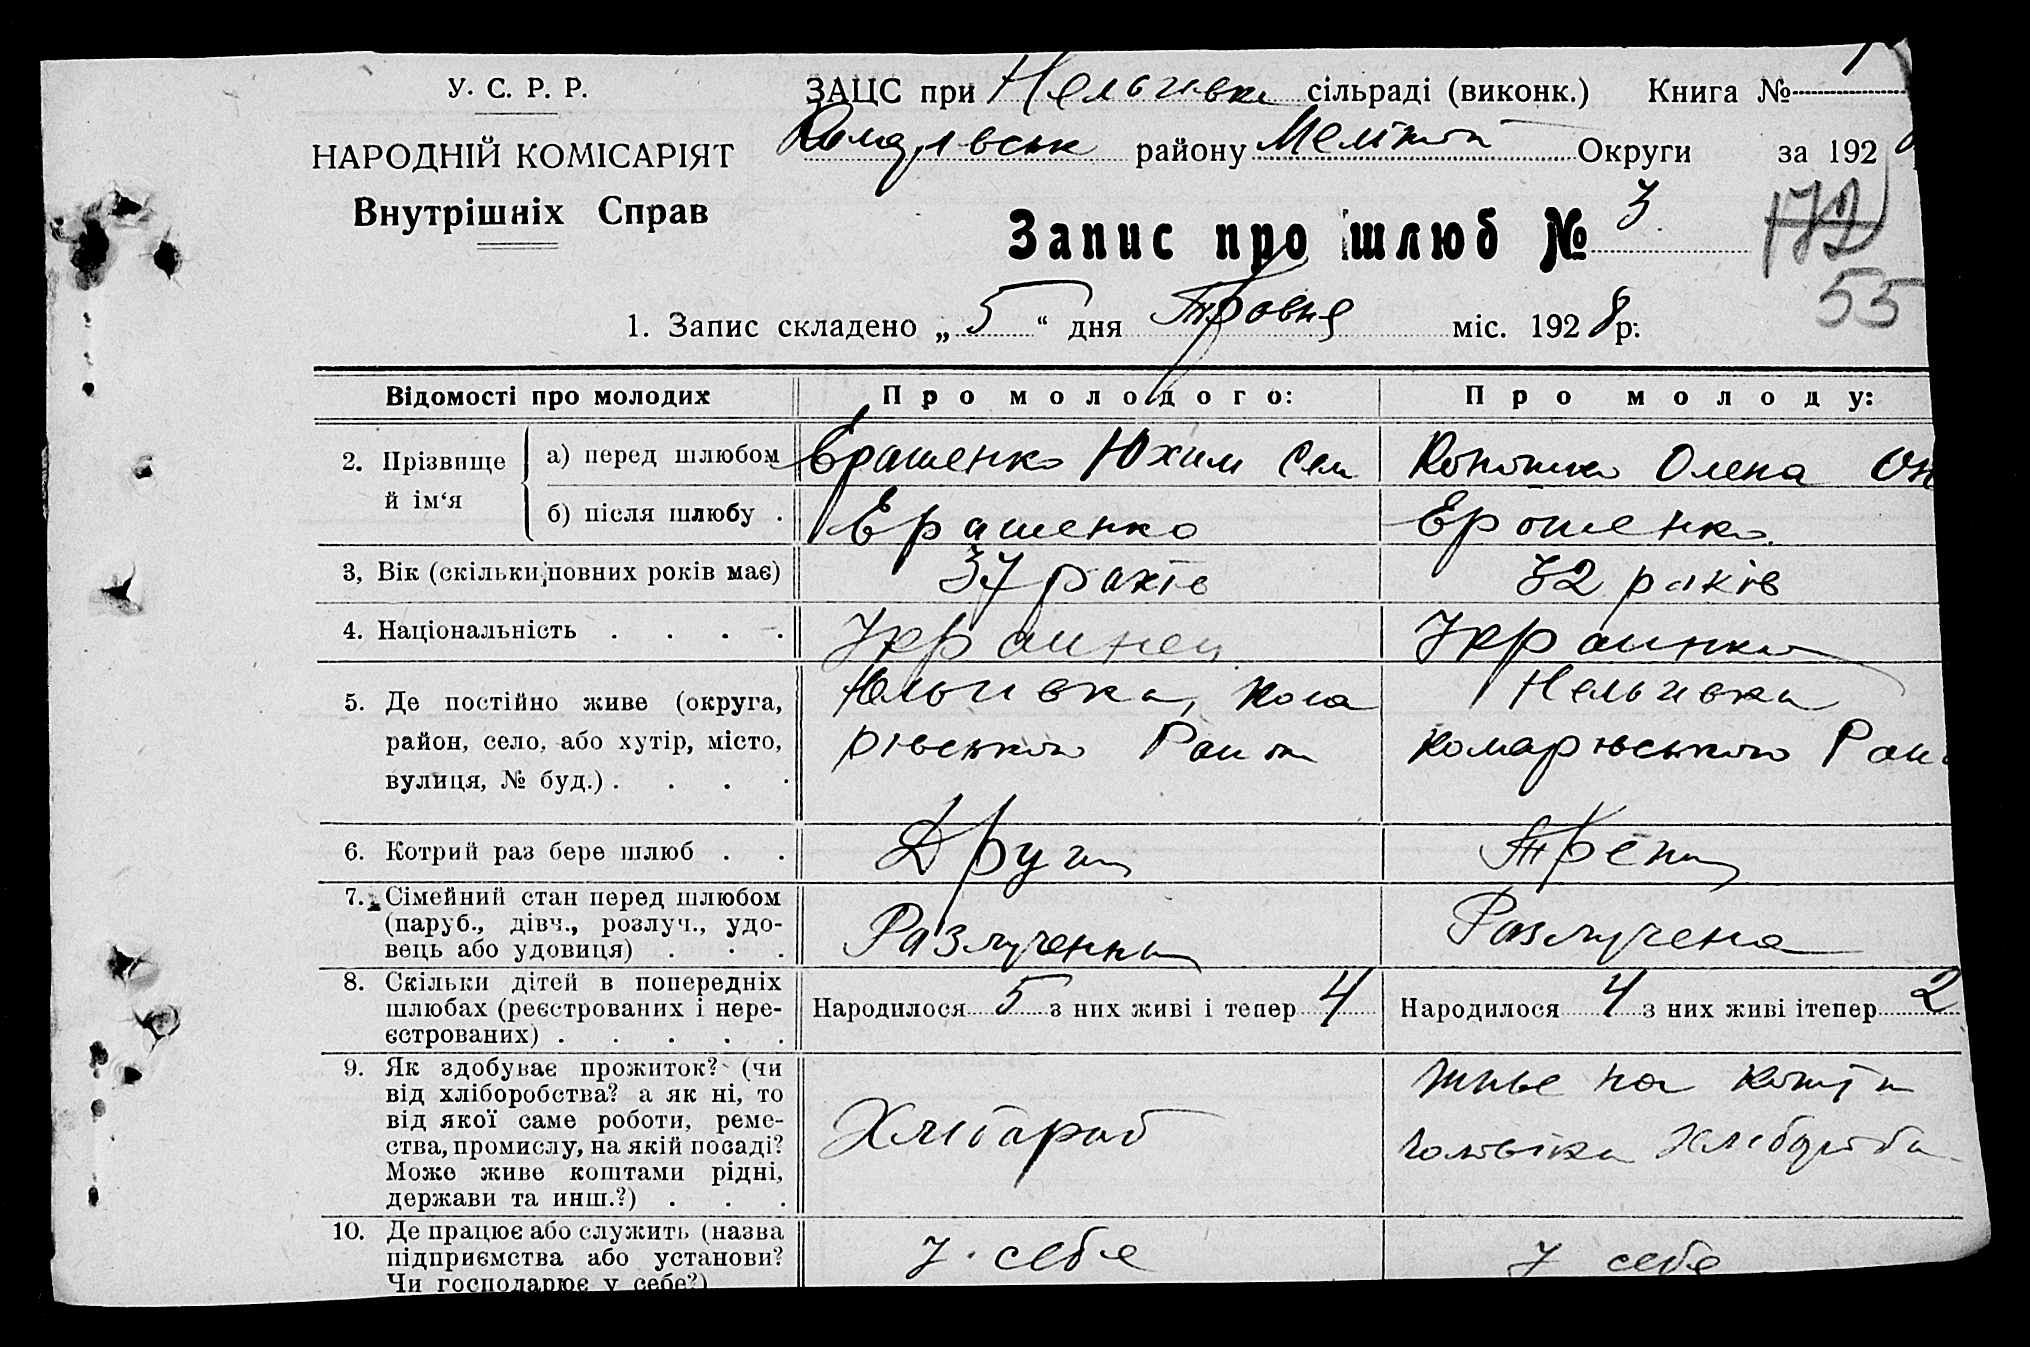 У. С. Р. Р.
НАРОДНІЙ КОМІСАРІЯТ
Внутрішніх Справ
ЗАЦС при Нельгивка сільраді (виконк.) Книга № 1
району Меліт Округи за 192
Запис про шлюб № 3
172
55
1. Запис складено „ 5 “ дня Травня міс. 192 8 р.
Відомості про молодих Про молодого: Про молоду:
2. Прізвище й ім‘я
а) перед шлюбом Єрашенко Юхим Сем Олена
б) після шлюбу . Ерашенко Ерошенко
3, Вік (скільки повних років має) 37 рахів 32 раків
4. Національність . . . . Украинец Украинка
5. Де постійно живе (округа, Нельгивка
район, село, або хутір, місто, рівського Раит Комарювського
вулиця, № буд.) . . . .
6. Котрий раз бере шлюб . . Други Трети
7. Сімейний стан перед шлюбом
(паруб., дівч., розлуч., удо-
вець або удовиця) . . . Разлучении Разлучена
8. Скільки дітей в попередніх
шлюбах (реєстрованих і нере- Народилося 5 з них живі і тепер 4 Народилося 4 з них живі ітепер 2
єстрованих) . . . . .
9. Як здобуває прожиток? (чи
від хліборобства? а як ні, то
від якої саме роботи, реме-
ства, промислу, на якій посаді? Хлібараб
Може живе коштами рідні,
держави та инш.?) . . .
10. Де працює або служить (назва
підприємства або установи? У себе У себе
Чи господарює у себе?)